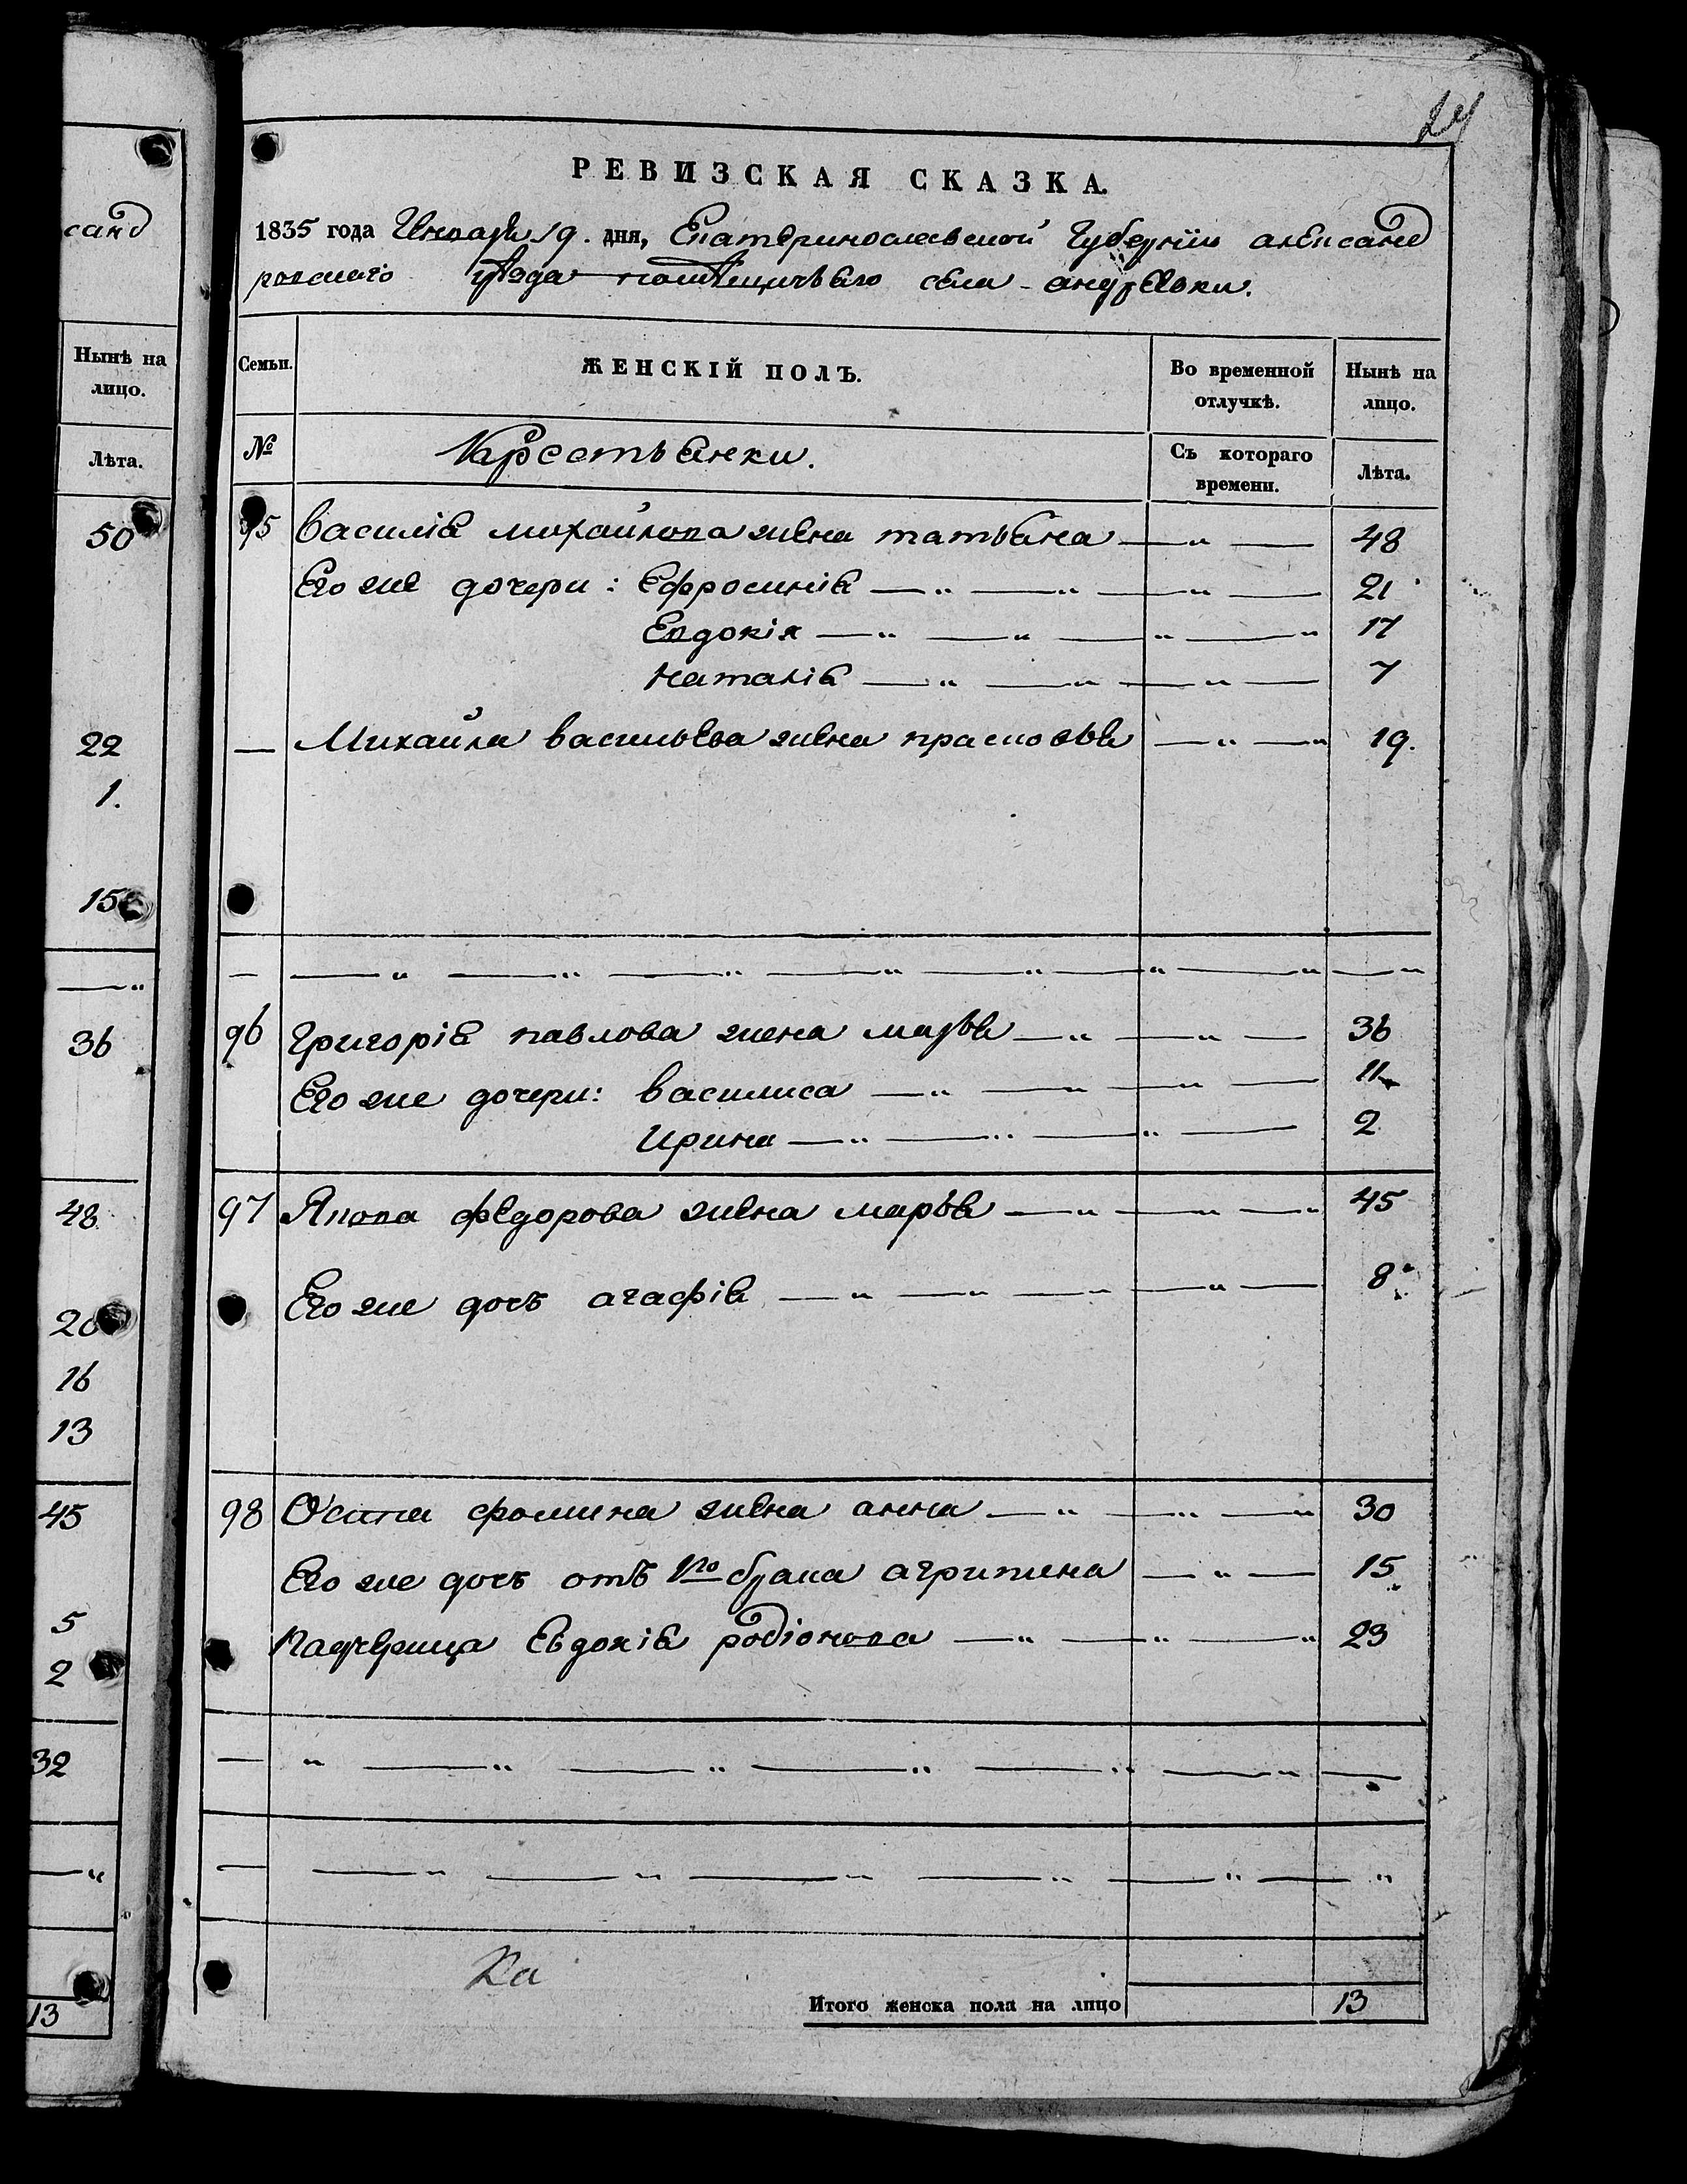 санд
Нынѣ на
лицо.
Лѣта.
50
22
1.
15
36
48
20
16
13
45
5
2
32
13
24
РЕВИЗСКАЯ СКАЗКА.
1835 года Генваря 19. дня, Екатеринославской Губерніи александ
ровскаго уѣзда помѣщичьяго села андрѣевки.
Семьи.
ЖЕНСКІЙ ПОЛЪ.
Во временной отлучкѣ.
Нынѣ на лицо.
№
Крестьянки.
Съ котораго времени.
Лѣта.
95 василія михайлова жена татьяна — 48
Его же дочери: Ефросинія — 21
Евдокія — 17
наталія — 7
— Михайла васильева жена прасковья — 19.
96 григорія павлова жена марья — 36
Его же дочери: василиса — 11
ирина — 2
97 Якова федорова жена марья — 45
Его же дочь агафія — 8
98 Осипа фомина жена анна — 30
Его же дочь отъ 1го брака агрипена — 15
Падчерица Евдокія родіонова — 23
Ка
Итого женска пола на лицо 13